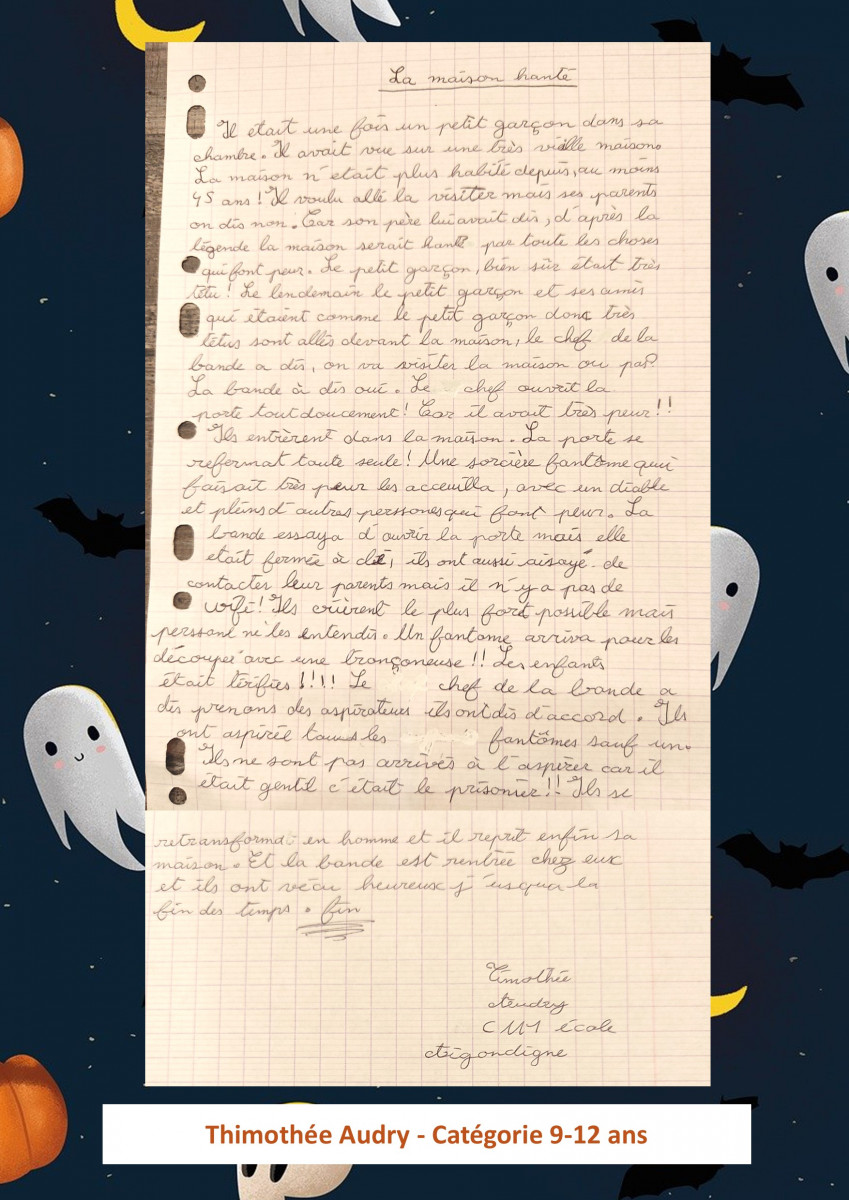 La maison hanté
Il était une fois un petit garçon dans sa
chambre. Il avait vue sur une très vieille maison.
La maison n'etait plus habité depuis, au moins
45 ans ! Il voulu allé la visiter mais ses parents
on dis non. Car son père lui avait dis, d'après la
légende la maison serait hanté par toute les choses
qui font peur. Le petit garçon, bien sûr était très
tétu ! Le lendemain le petit garçon et ses amis
qui étaient comme le petit garçon donc très
tétus sont allés devant la maison, le chef de la
bande a dis, on va visiter la maison ou pas?
La bande à dis oui. Le chef ouvrit la
porte tout doucement ! Car il avait très peur !!
Ils entrèrent dans la maison. La porte se
refermat toute seule ! Une sorcière fantôme qui
faisait très peur les acceuilla, avec un diable
et pleins d'autres perssones qui font peur. La
bande essaya d'ouvrir la porte mais elle
etait fermée à clé, ils ont aussi aisayé de
contacter leur parents mais il n'y a pas de
wifi ! Ils crièrent le plus fort possible mais
perssone ne les entendis. Un fantome arriva pour les
découper avec une tronçoneuse !! Les enfants
était térifiés !!!! Le chef de la bande a
dis prenons des aspirateurs ils ont dis d'accord. Ils
ont aspirée tous les fantômes sauf un.
Ils ne sont pas arrivés à l'aspirer car il
était gentil c'était le prisonier !! Ils se
retransforma en homme et il reprit enfin sa
maison. Et la bande est rentrée chez eux
et ils ont vécu heureux j'usqua la
fin des temps. fin
Timothée
Audry
CM1 école
Aigondigne
Thimothée Audry - Catégorie 9-12 ans